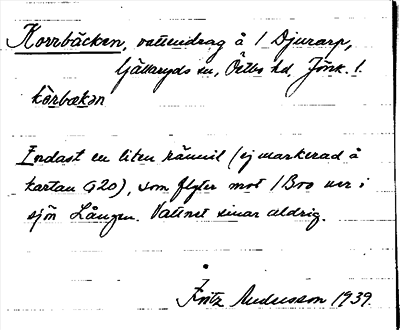 Korrbäcken, vattendrag å 1 Djurarp,
Gällaryds sn, Östbo hd, Jönk. l.
kòrbækən
Endast en liten rännil (ej markerad å
kartan G20), som flyter mot 1 Boo ner i
sjön Lången. Vattnet sinar aldrig.
Fritz Andersson 1939.